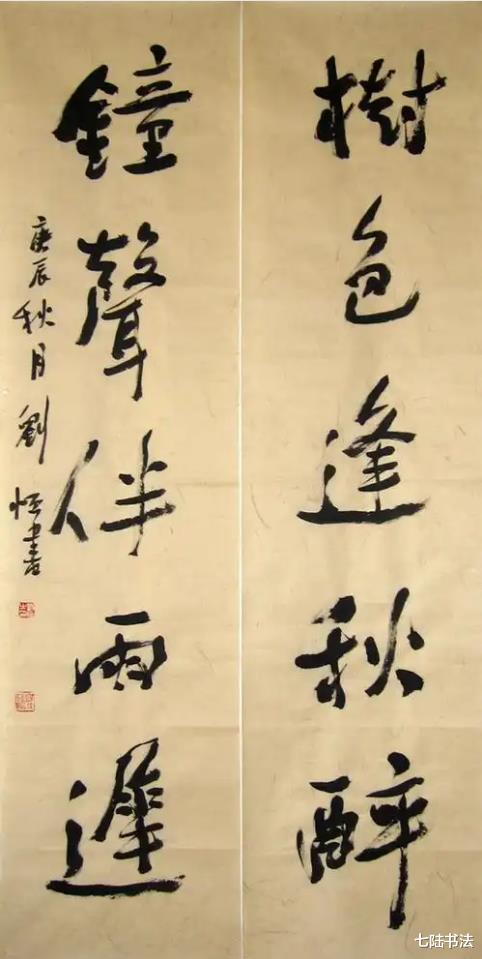 樹色逢秋醉
鐘聲伴雨遲
庚辰秋月劉恒書
七陆书法